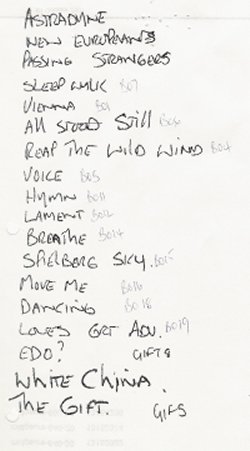 ASTRADYNE
NEW EUROPEANS
PASSING STRANGERS
SLEEPWALK B07
VIENNA B01
All STOOD Still B06
REAP THE WILD WIND B04
VOICE B05
HYMN B011
LAMENT B012
BREATHE B014
SPIELBERG SKY. B015
MOVE ME B016
DANCING B018
LOVES GRT ADV. B019
EDO? GIFT8
WHITE CHINA.
THE GIFT. GIFS